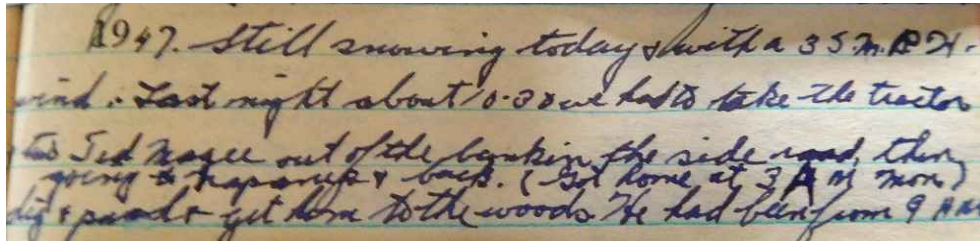 1947. Still snowing today & with a 35 M.P.H.
wind. Last night about 10.30 we had to take the tractor
Ted Magee out of the bank in the side road, then
going to & back. (Got home at 3 A M mon)
dig & push & get him to the woods He had been from 9 A.M.